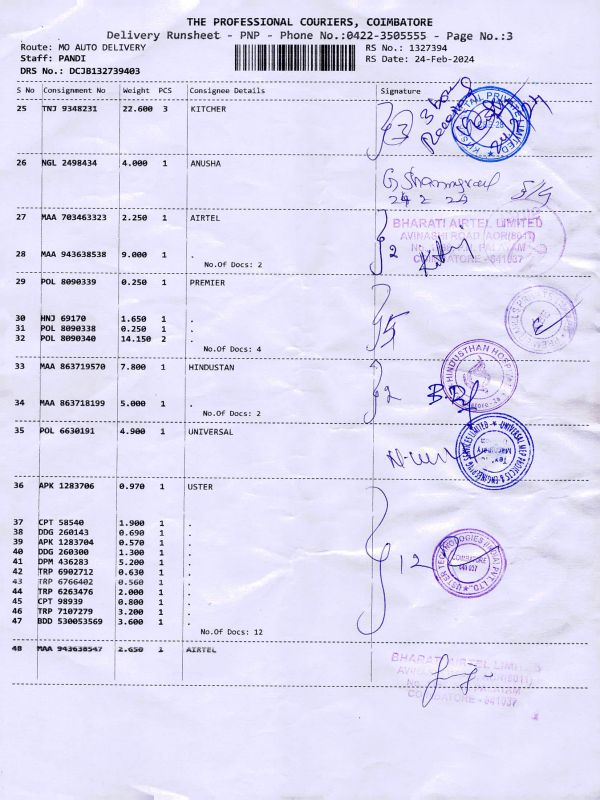 THE PROFESSIONAL COURIERS, COIMBATORE
Delivery Runsheet - PNP - Phone No.:0422-3505555 - Page No.:3
Route: MO AUTO DELIVERY RS No.: 1327394
Staff: PANDI RS Date: 24-Feb-2024
DRS No.: DCJB132739403
S No Consignment No Weight PCS Consignee Details Signature
25 TNJ 9348231 22.600 3 KITCHER
3 box
Received
26 NGL 2498434 4.000 1 ANUSHA
24 2 24
27 MAA 703463323 2.250 1 AIRTEL
BHARATI AIRTEL LIMITED
AVINASHI ROAD (AOR(8011)
28 MAA 943638538 9.000 1 .
2
COIMBATORE - 641037
No.Of Docs: 2
29 POL 8090339 0.250 1 PREMIER
30 HNJ 69170 1.650 1 .
31 POL 8090338 0.250 1 .
32 POL 8090340 14.150 2 .
No.Of Docs: 4
33 MAA 863719570 7.800 1 HINDUSTAN
HINDUSTHAN HOSPITAL
34 MAA 863718199 5.000 1 .
2
No.Of Docs: 2
35 POL 6630191 4.900 1 UNIVERSAL
UNIVERSAL MEP PROJECTS & ENGINEERING SERVICES LIMITED
36 APK 1283706 0.970 1 USTER
37 CPT 58540 1.900 1 .
38 DDG 260143 0.690 1 .
39 APK 1283704 0.570 1 .
40 DDG 260300 1.300 1 .
41 DPM 436283 5.200 1 .
42 TRP 6902712 0.630 1 .
43 TRP 6766402 0.560 1 .
44 TRP 6263476 2.000 1 .
45 CPT 98939 0.800 1 .
46 TRP 7107279 3.200 1 .
47 BDD 530053569 3.600 1 .
12
USTER TECHNOLOGIES (INDIA) PVT. LTD.
COIMBATORE
641 037
No.Of Docs: 12
48 MAA 943638547 2.650 1 AIRTEL
BHARATI AIRTEL LIMITED
COIMBATORE - 641037